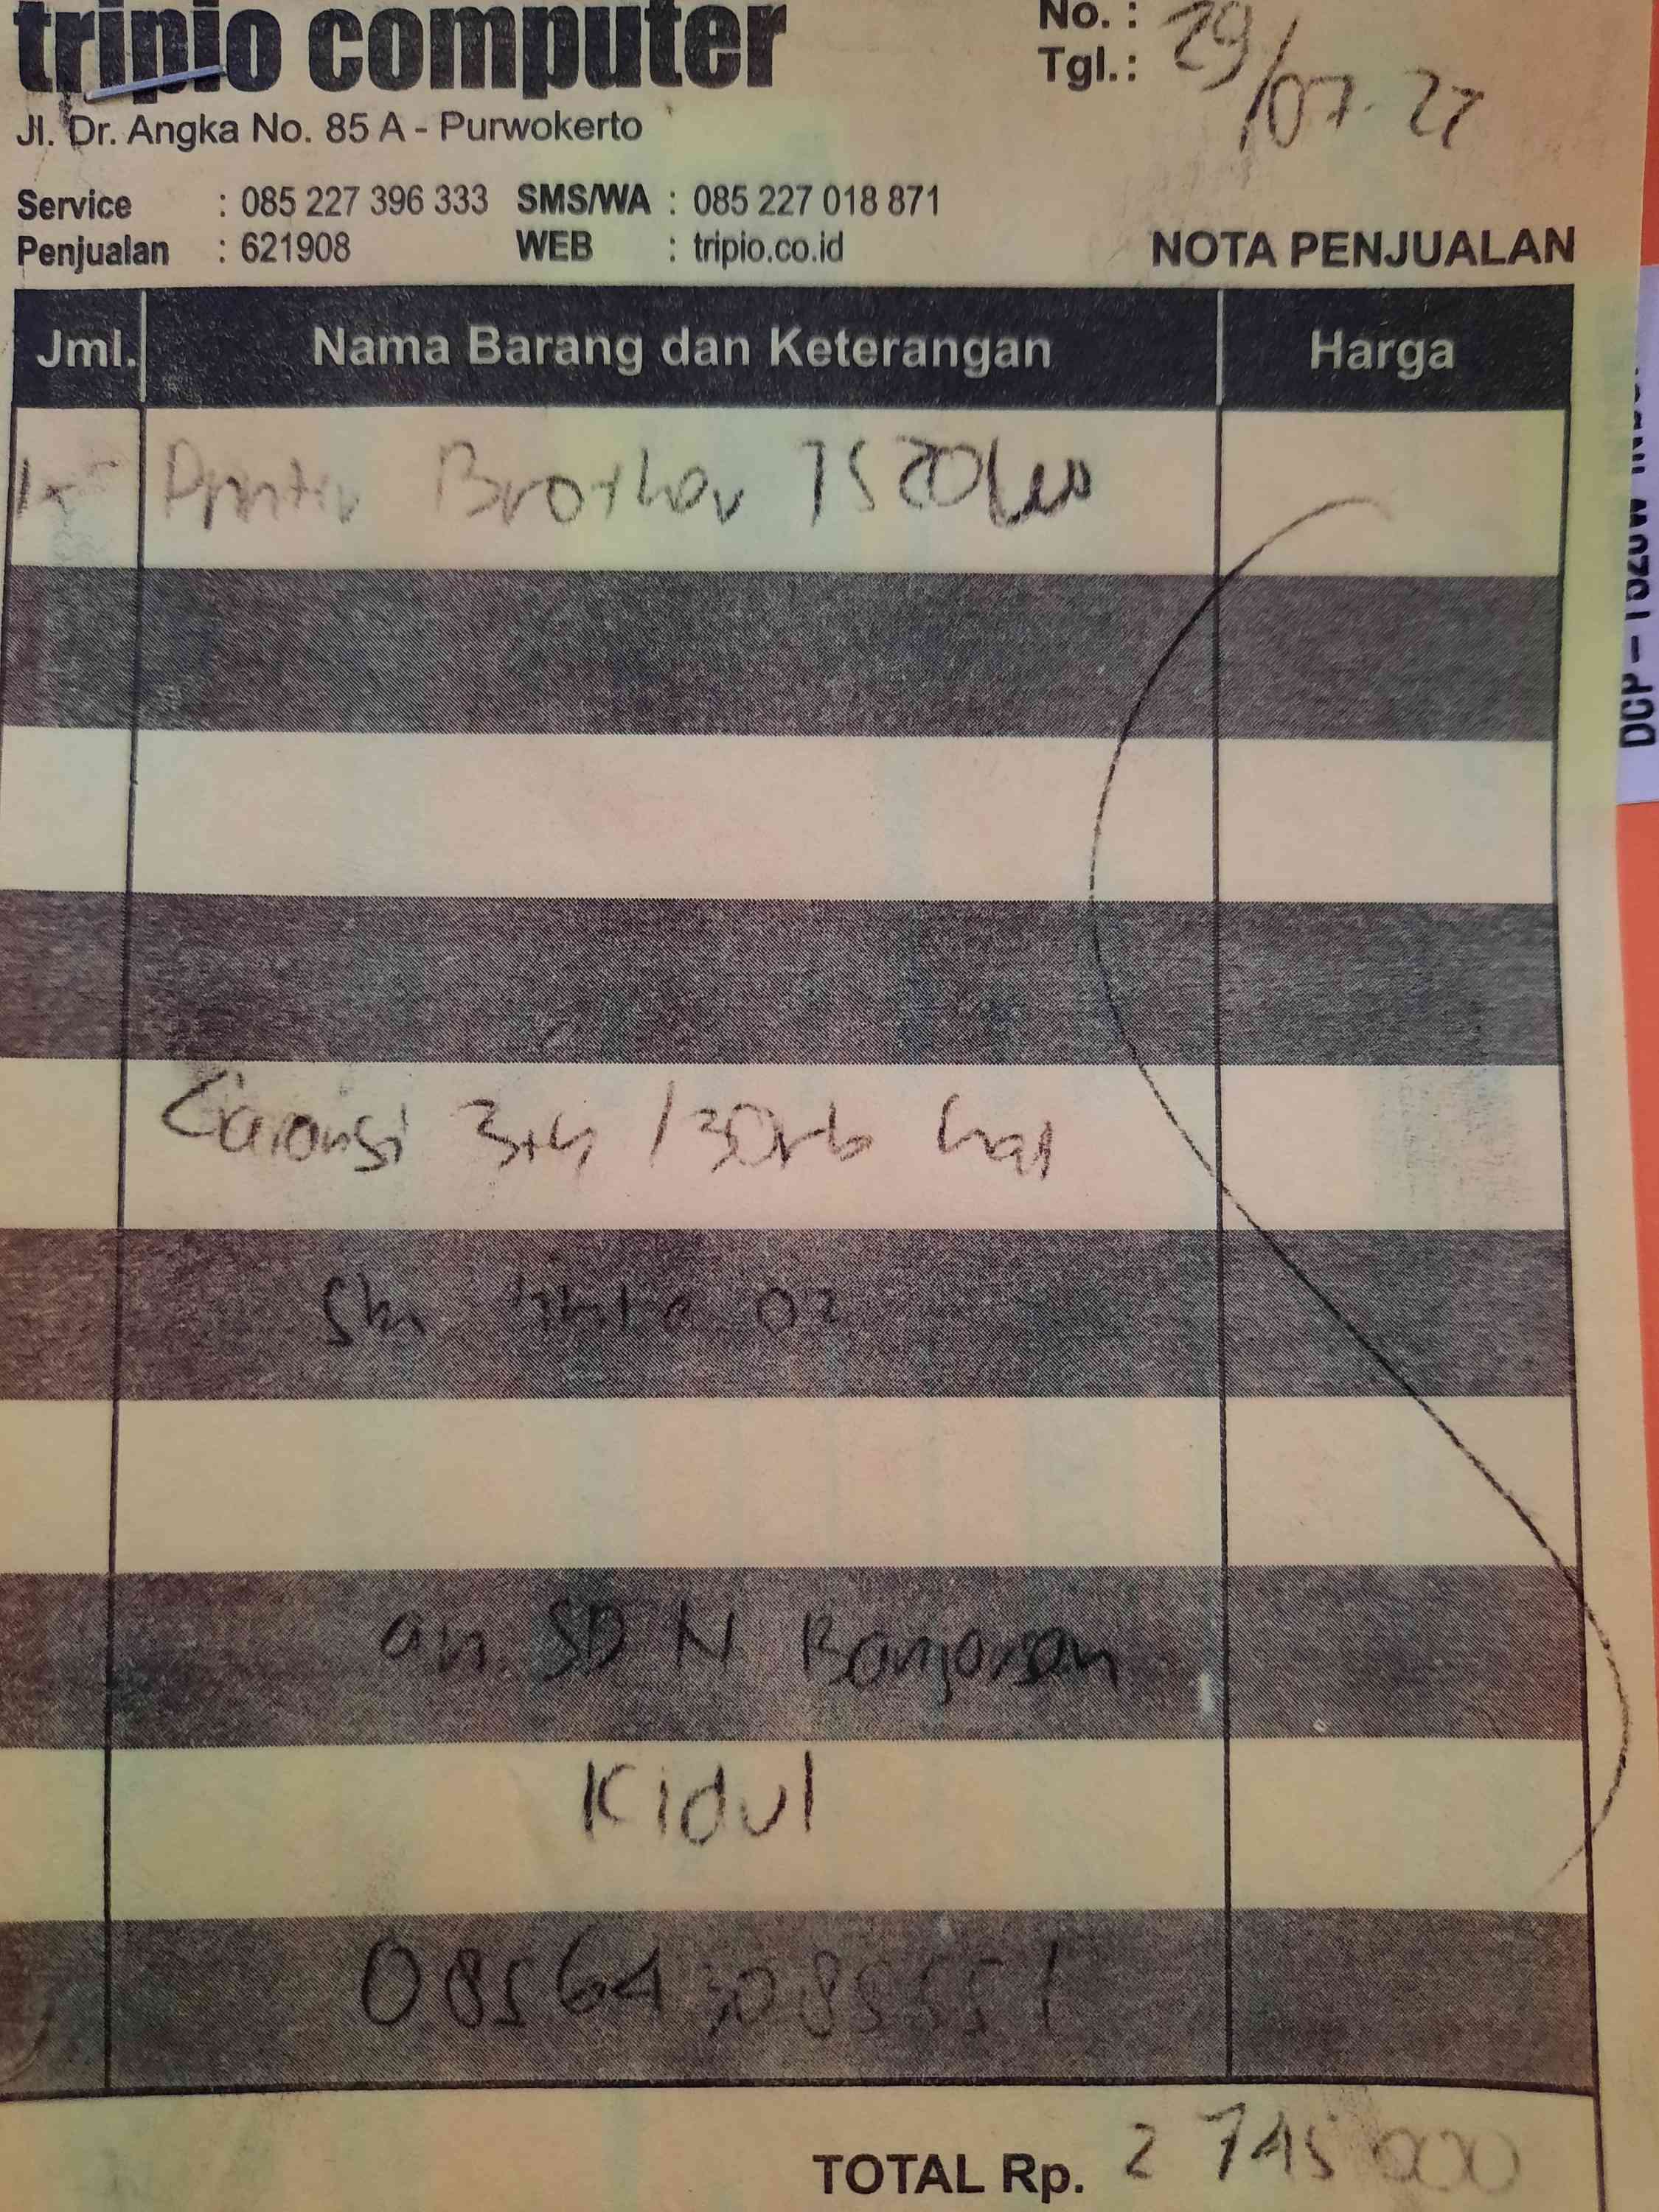 tripio computer
No. :
Tgl. : 29/07-22
Jl. Dr. Angka No. 85 A - Purwokerto
Service : 085 227 396 333 SMS/WA : 085 227 018 871
Penjualan : 621908 WEB : tripio.co.id
NOTA PENJUALAN
Jml. Nama Barang dan Keterangan Harga
1 Printer Brother T520W
Garansi 3th / 30rb hal
tinta 02
an. SD N Banjarsan
Kidul
TOTAL Rp. 2 745 000
DCP - T520W